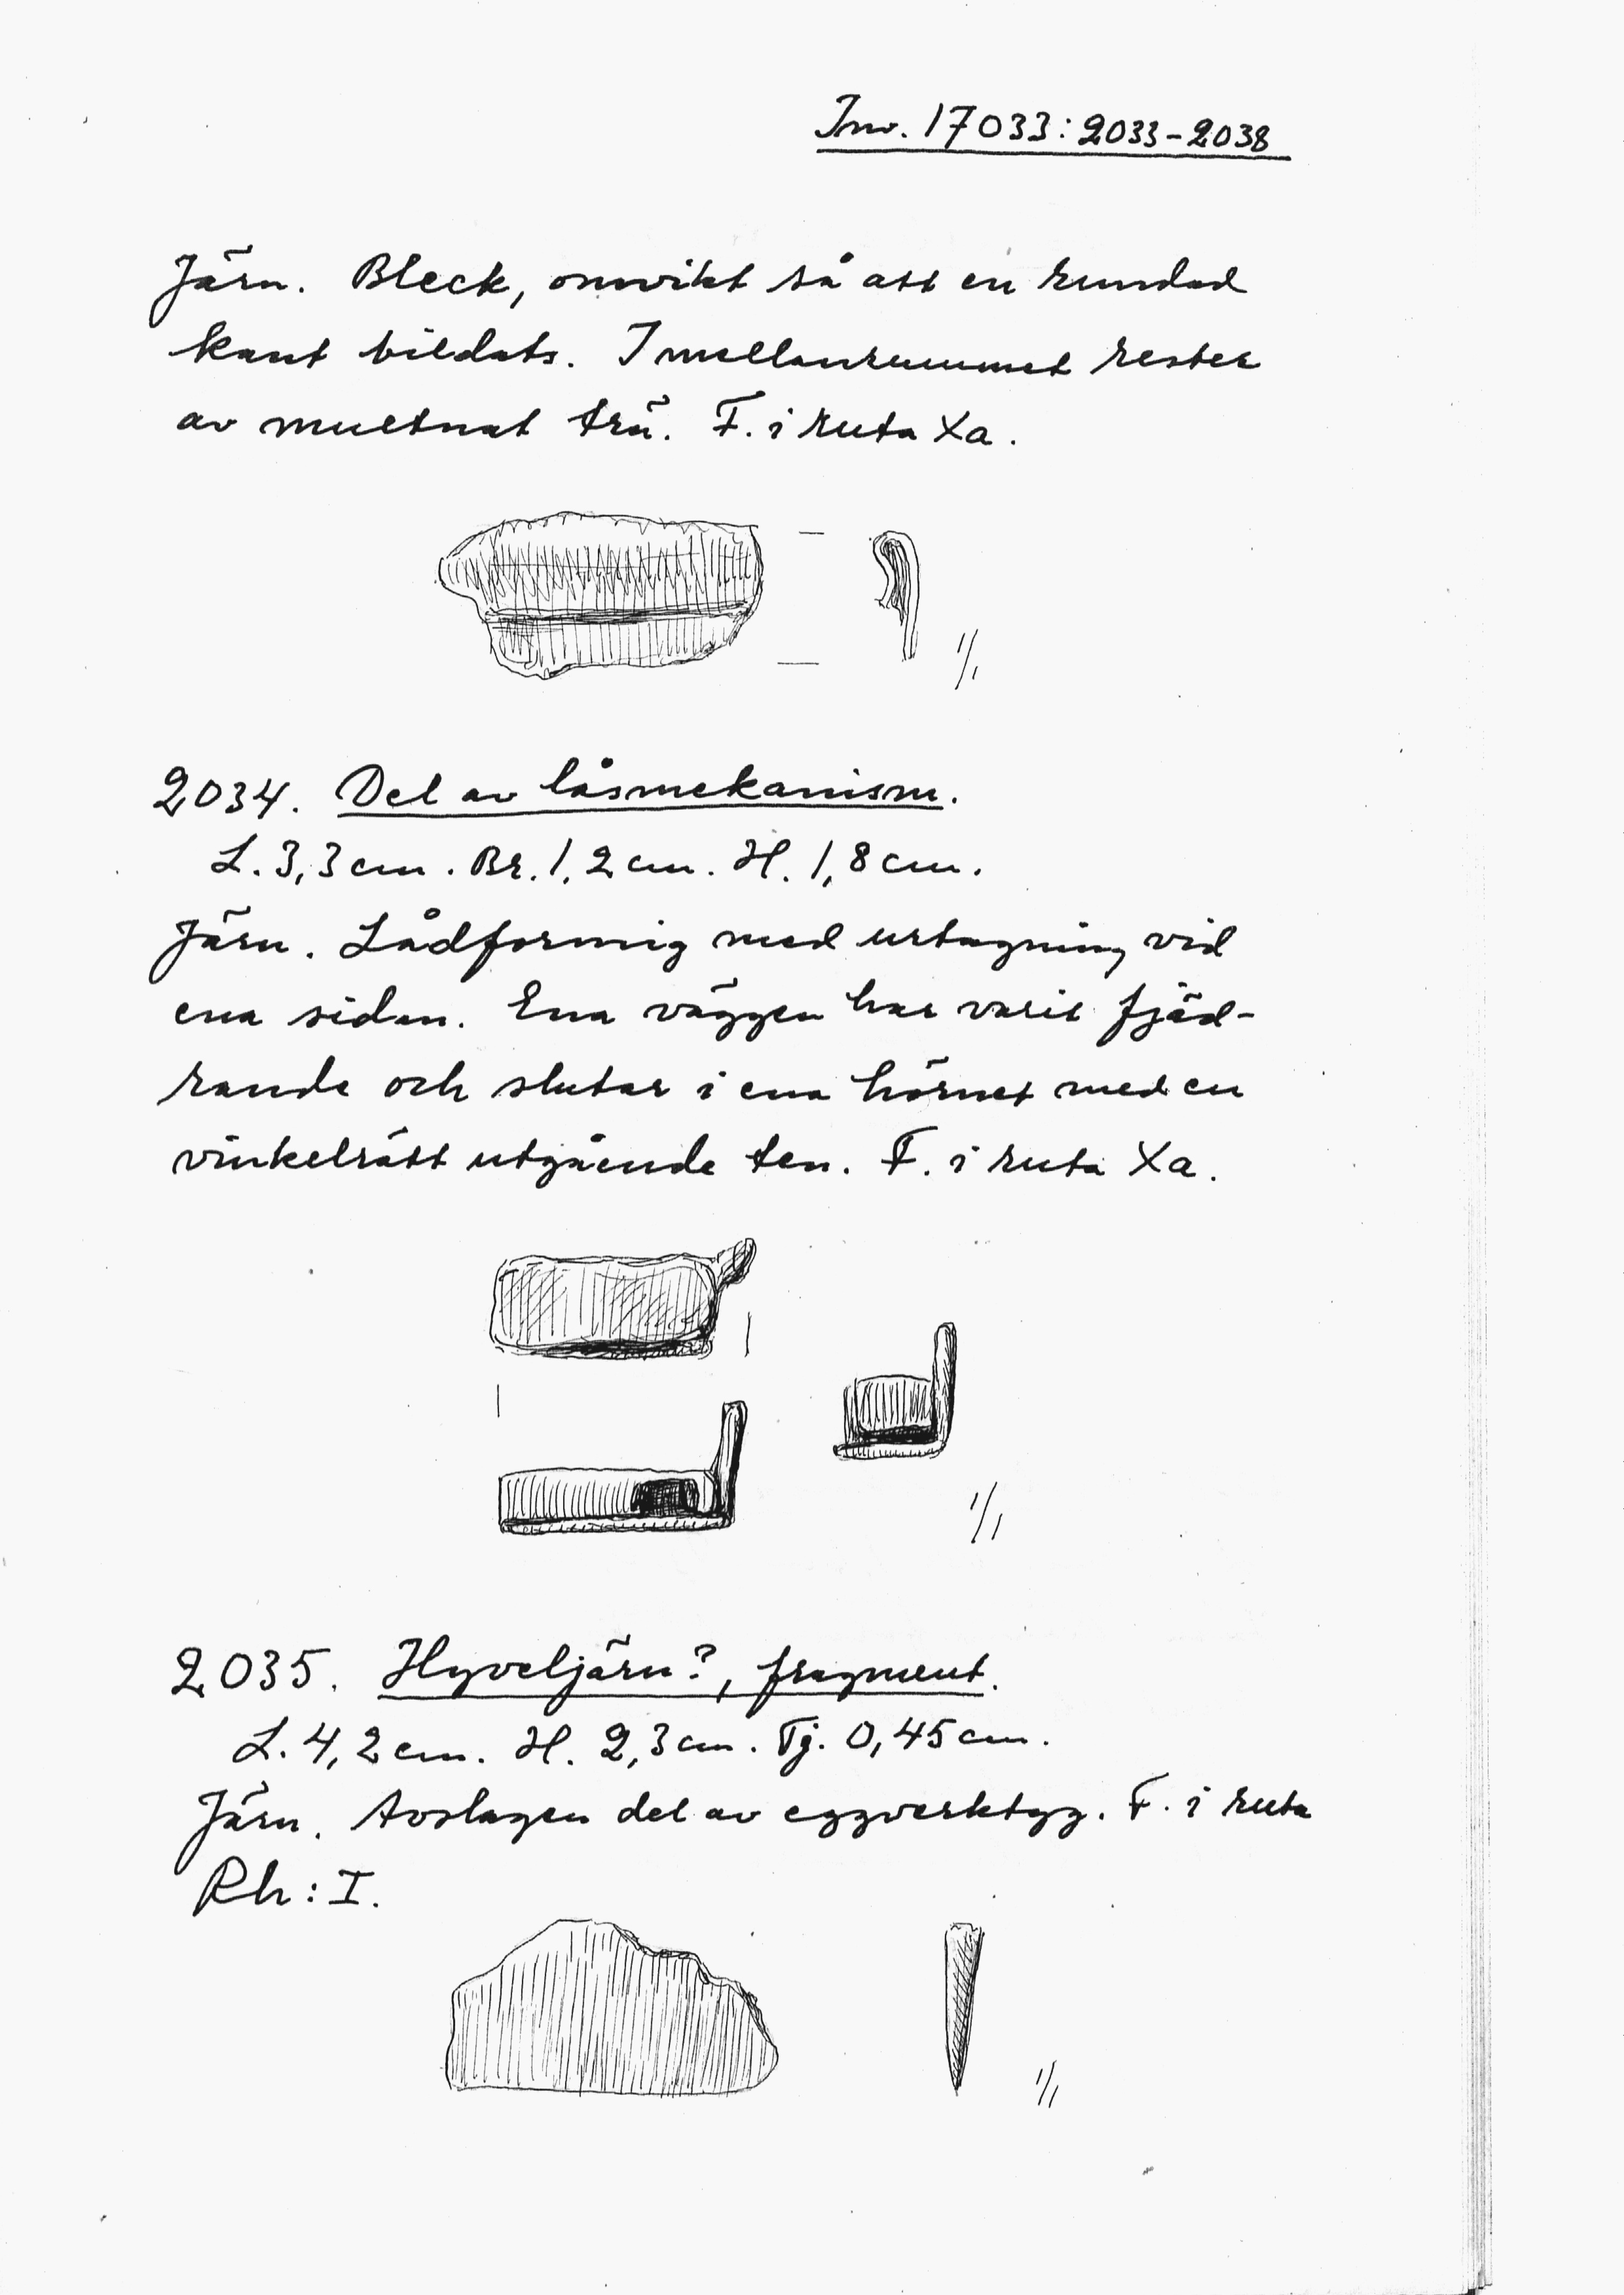 Inv. 17033:2033-2038
Järn. Bleck, omvikt så att en rundad
kant bildats. I mellanrummet rester
av multnat trä. F. i ruta Xa.
1/1
2034. Del av låsmekanism.
L. 3,3 cm. Br. 1,2 cm. H. 1,8 cm.
Järn. Lådformig med urtagning vid
ena sidan. Ena väggen har varit fjäd-
rande och slutar i ena hörnet med en
vinkelrätt utgående ten. F. i ruta Xa.
1/1
2035. Hyveljärn?, fragment.
L. 4,2 cm. H. 2,3 cm. Tj. 0,45 cm.
Järn. Avslagen del av eggverktyg. F. i ruta
Rh: I.
1/1